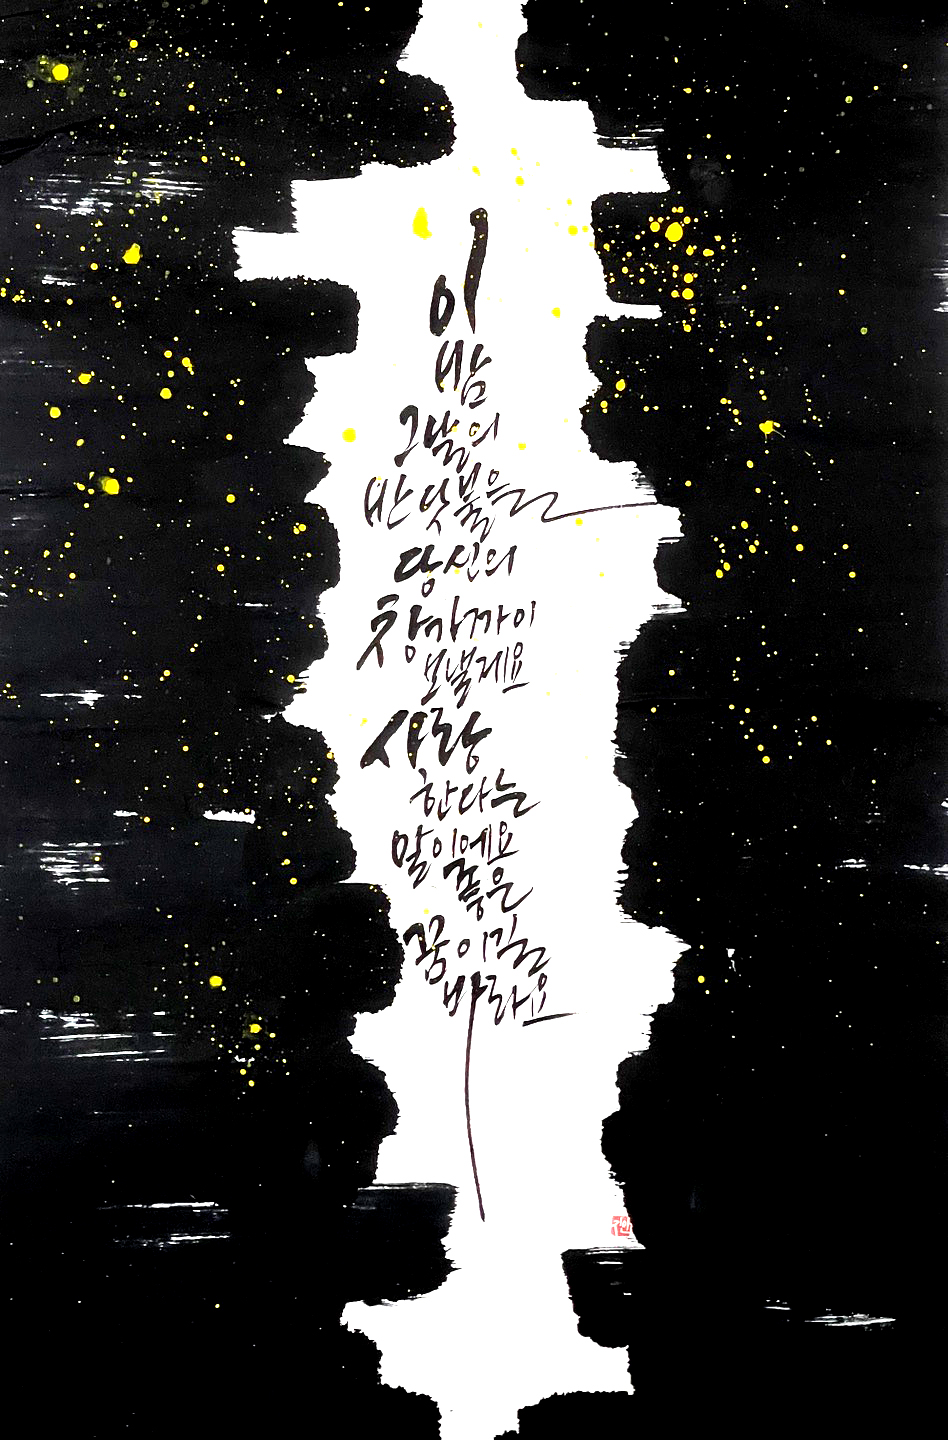 이
밤
그날의
반딧불을
당신의
창가까이
보낼게요
사랑
한다는
말이에요
좋은
꿈이길
바라요